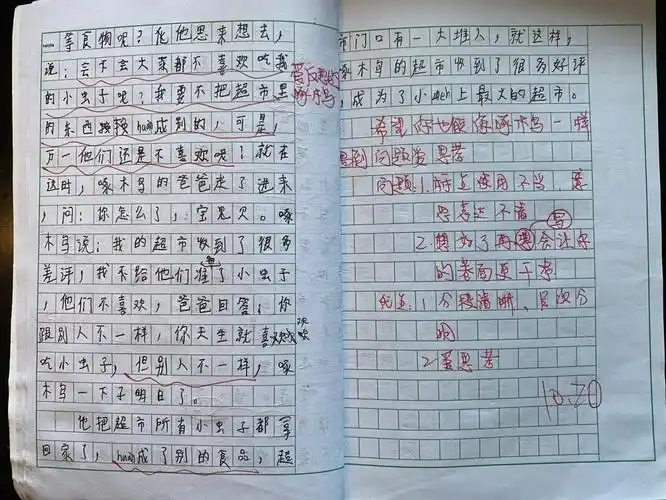 等食物呢？他思来想去，
说：会不会大家都不喜欢吃我
的小虫子呢？我要不把超市里
的东西换换huàn成别的，可是，
万一他们还是不喜欢呢？就在
这时，啄木鸟的爸爸走了进来
，问：你怎么了，宝贝。啄
木鸟说：我的超市收到了很多
差评，我不给他们准了小虫子
，他们不喜欢，爸爸回答：你
跟别人不一样，你天生就喜欢
吃小虫子，但别人不一样，啄
木鸟一下子明白了。
他把超市所有小虫子都拿
回家了，huàn成了别的食品，超
啄木鸟
市门口有一大堆人，就这样，
啄木鸟的超市收到了很多好评
，成为了小上最大的超市。
希望你也能像啄木鸟一样
遇到问题爱思考
问题：1.标点使用不当，意
思表达不清
2.想好了再写会让你
的卷面更干净
优点：1.分段清晰，层次分
明
2.爱思考
10.20